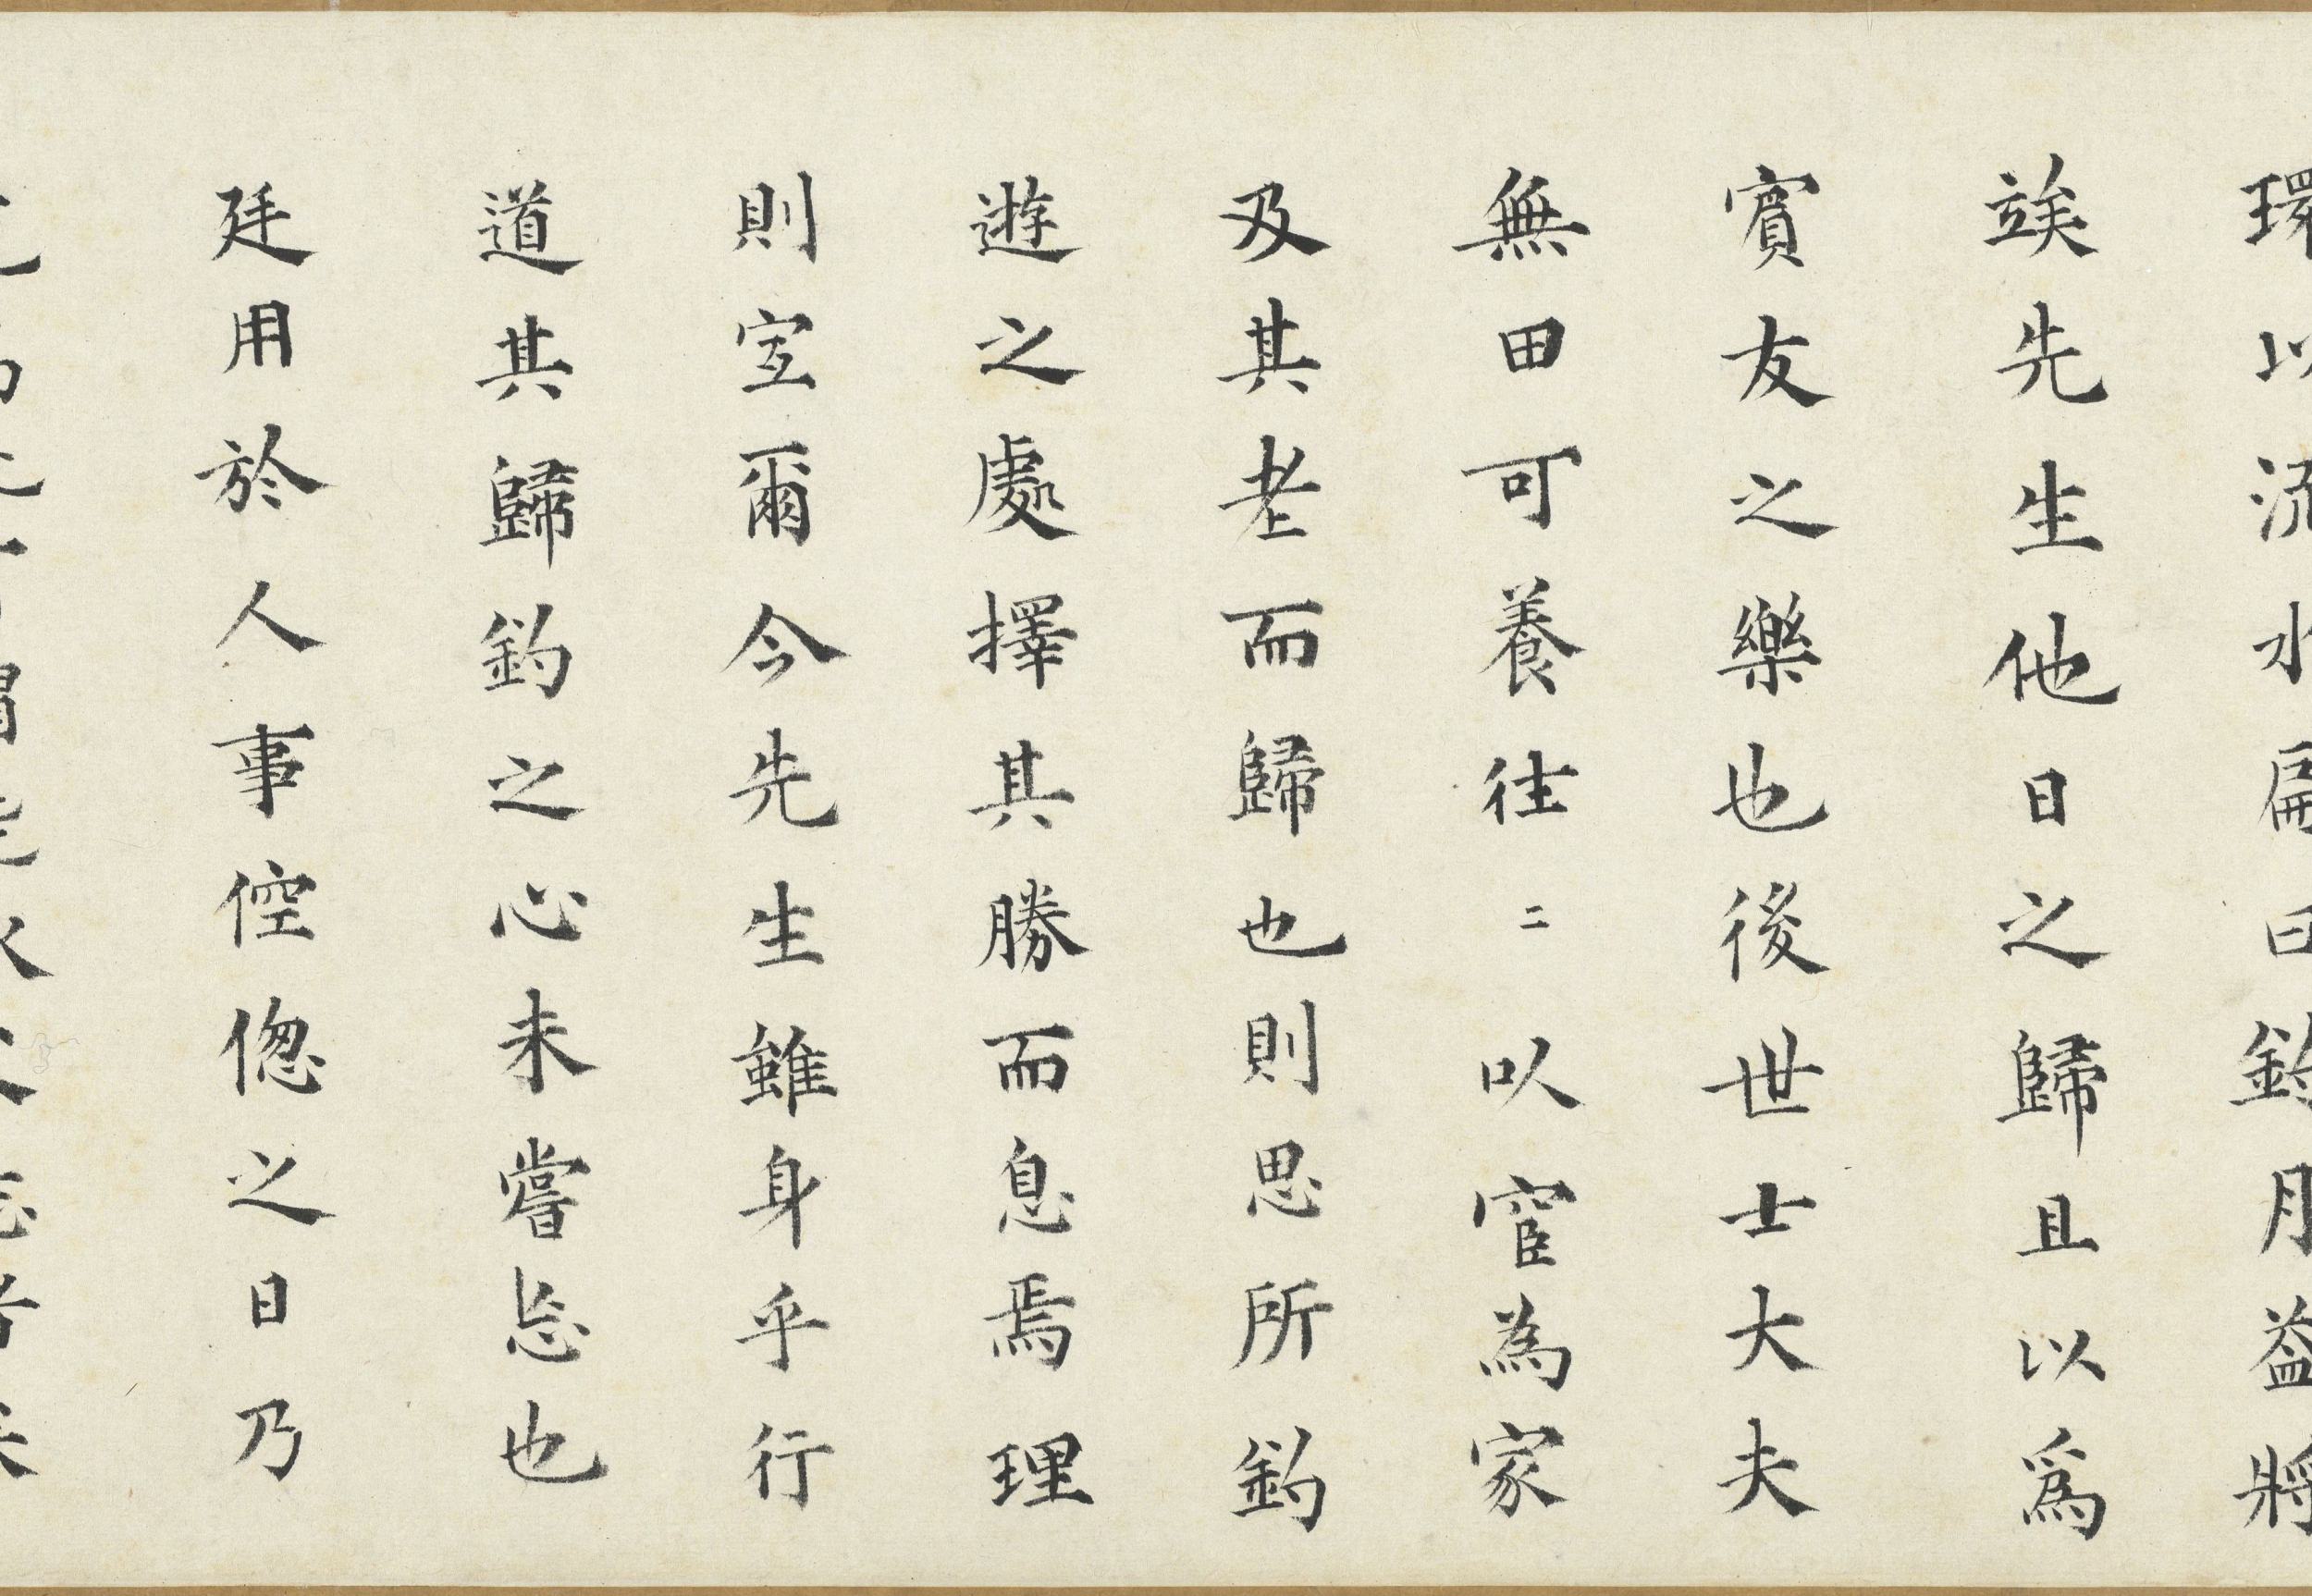 環以流水扁曰釣月葢將
竢先生他日之歸且以爲
賓友之樂也後世士大夫
無田可養往二以宦為家
及其老而歸也則思所釣
遊之處擇其勝而息焉理
則宐爾今先生雖身乎行
道其歸釣之心未嘗忘也
廷用於人事倥偬之日乃